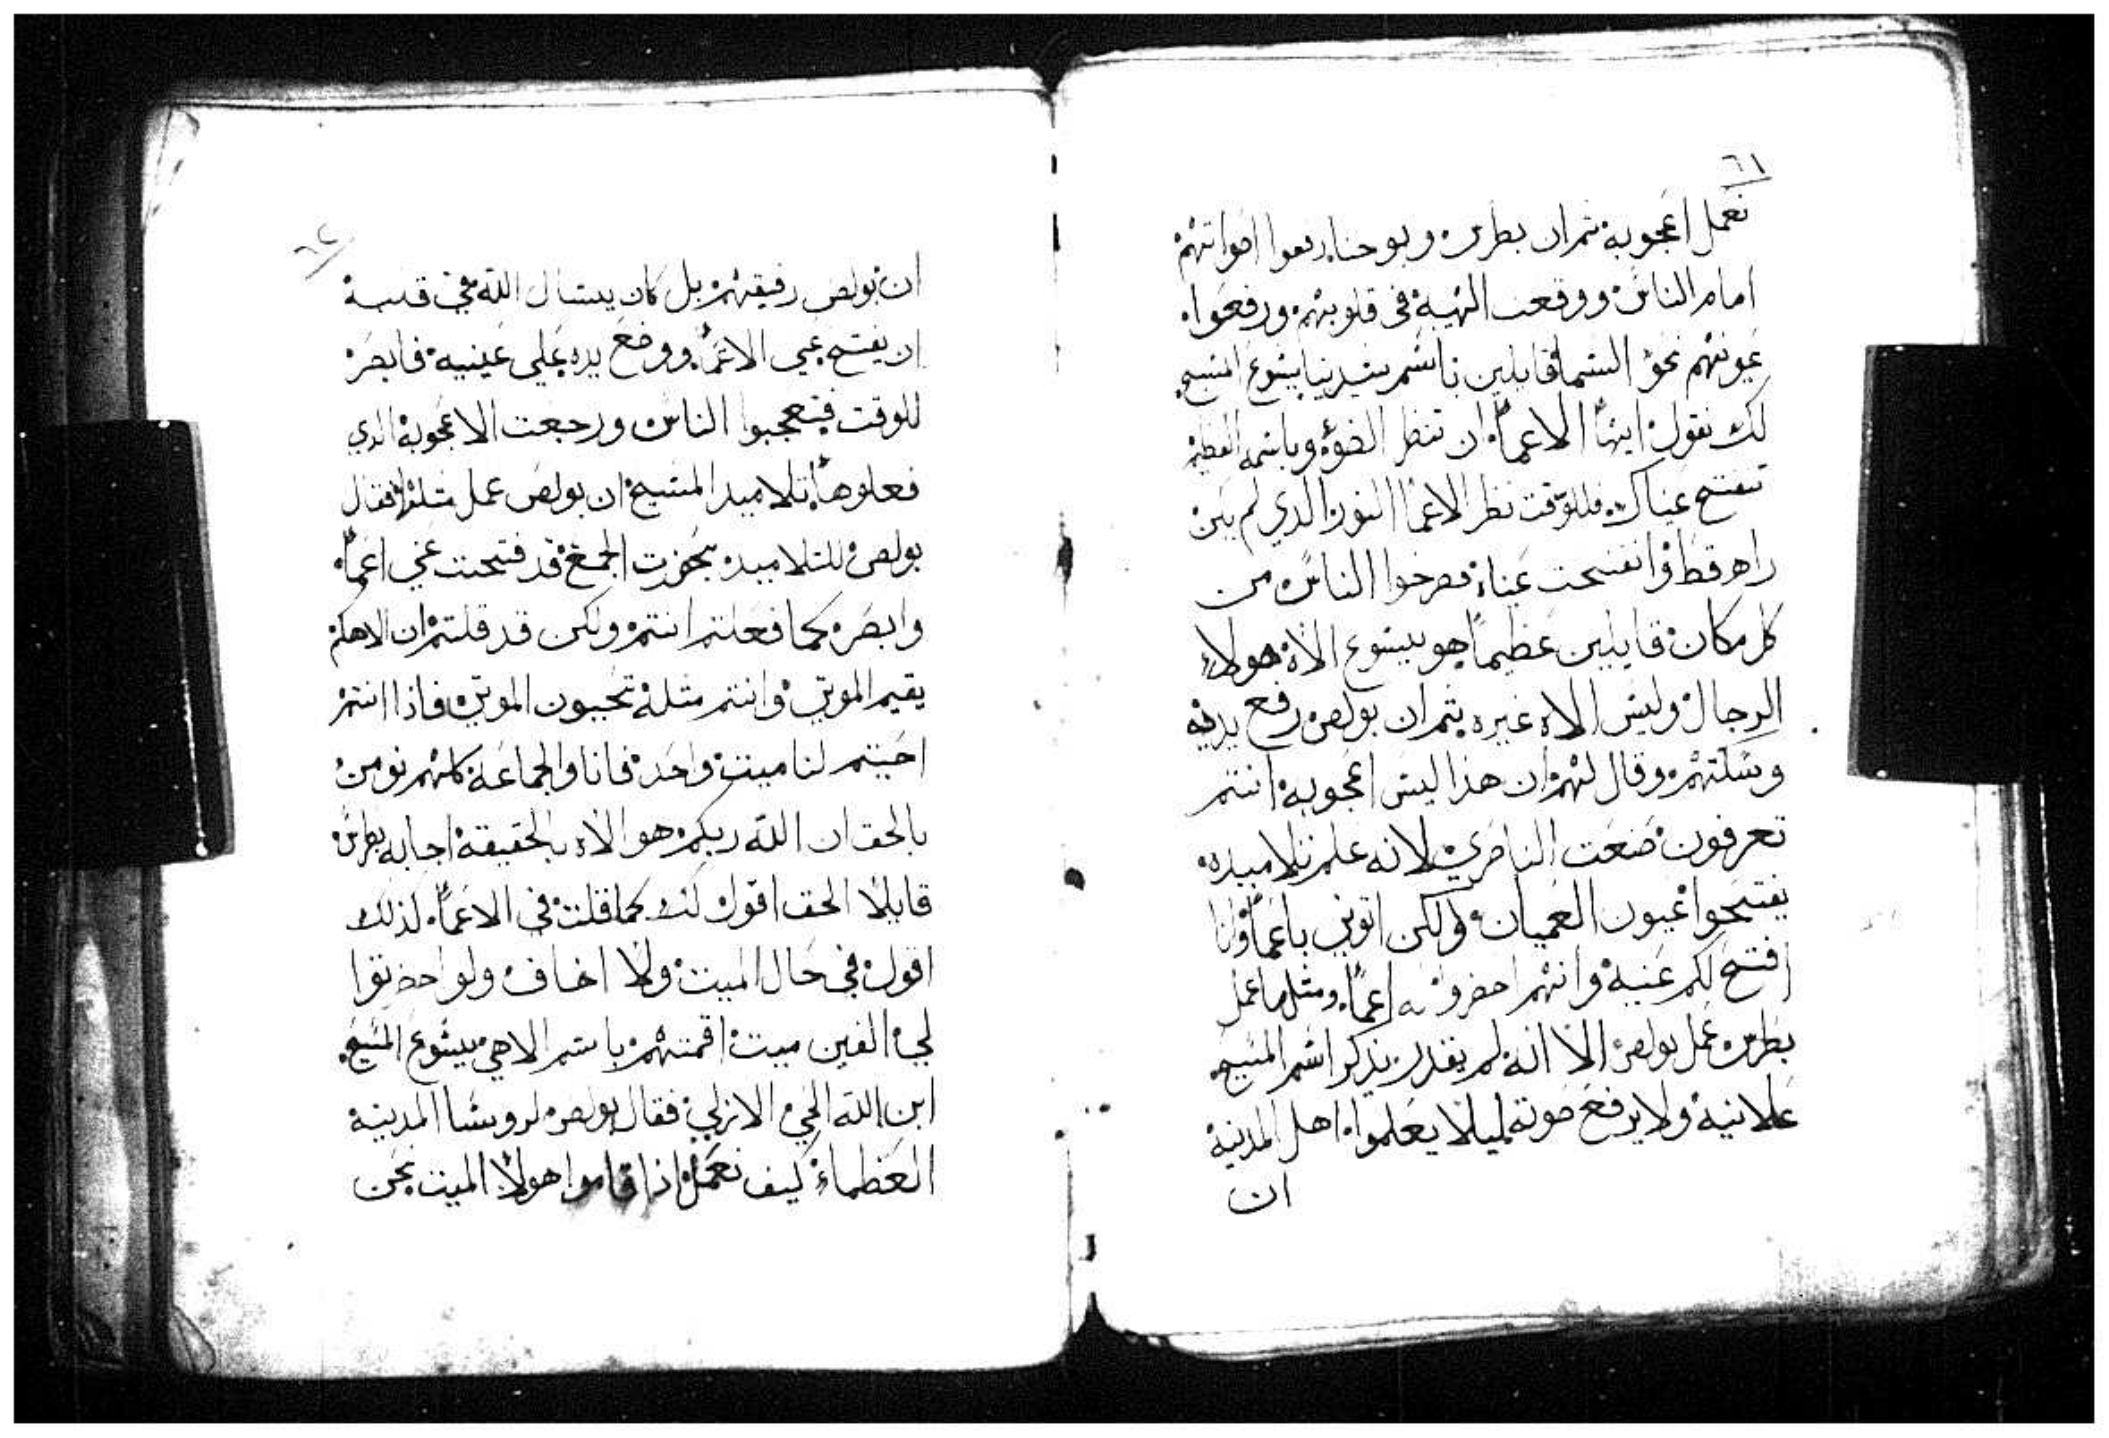 ٦١
نعمل اعجوبة ثم ان بطرس ويوحنا رفعوا اصواتهم
امام الناس ووقعت الهيبة في قلوبهم ورفعوا
عيونهم نحو السما قايلين باسم سيدنا يسوع المسيح
لك نقول ايها الاعما ان تنظر الضوء وباسمه العظيم
تنفتح عيناك فللوقت نظر الاعما النور الدي لم يكن
راه قط وانفتحت عيناه فصرخوا الناس من
كل مكان قايلين عظيما هو يسوع الاه هولاء
الرجال وليس الاه غيره ثم ان بولص رفع يديه
وسكتهم وقال لهم ان هذا ليس اعجوبة انتم
تعرفون صنعت الناصري لانه علم تلاميده
يفتحوا عيون العميان ولكن اتوني باعما وانا
افتح لكم عنيه وانهم احضروا له اعما ومثل ما عمل
بطرس عمل بولص الا انه لم يقدر يذكر اسم المسيح
علانية ولا يرفع صوته ليلا يعلموا اهل المدينة
ان
٦٢
ان بولص رفيقهم بل كان يسال الله في قلبه
ان يفتح عيي الاعما ووضع يده علي عينيه فابصر
للوقت فتعجبوا الناس ورجعت الاعجوبة الدي
فعلوها تلاميد المسيح ان بولص عمل مثلها فقال
بولص للتلاميد بحضرت الجمع قد فتحت عني اعما
وابصر كما فعلتم انتم ولكن قد قلتم ان الاهكم
يقيم الموتي وانتم مثله تحييون الموتي فاذا انتم
احييتم لنا ميت واحد فانا والجماعة كلهم نومن
بالحق ان الله ربكم هو الاه بالحقيقة اجابه بطرس
قايلا الحق اقول لك كما قلت في الاعما لذلك
اقول في حال الميت ولا اخاف ولو احضرتوا
لي الفين ميت اقمتهم باسم الاهي يسوع المسيح
ابن الله الحي الازلي فقال بولص لروسا المدينة
العظماء كيف نعمل اذا قاموا هولا الميت نحن